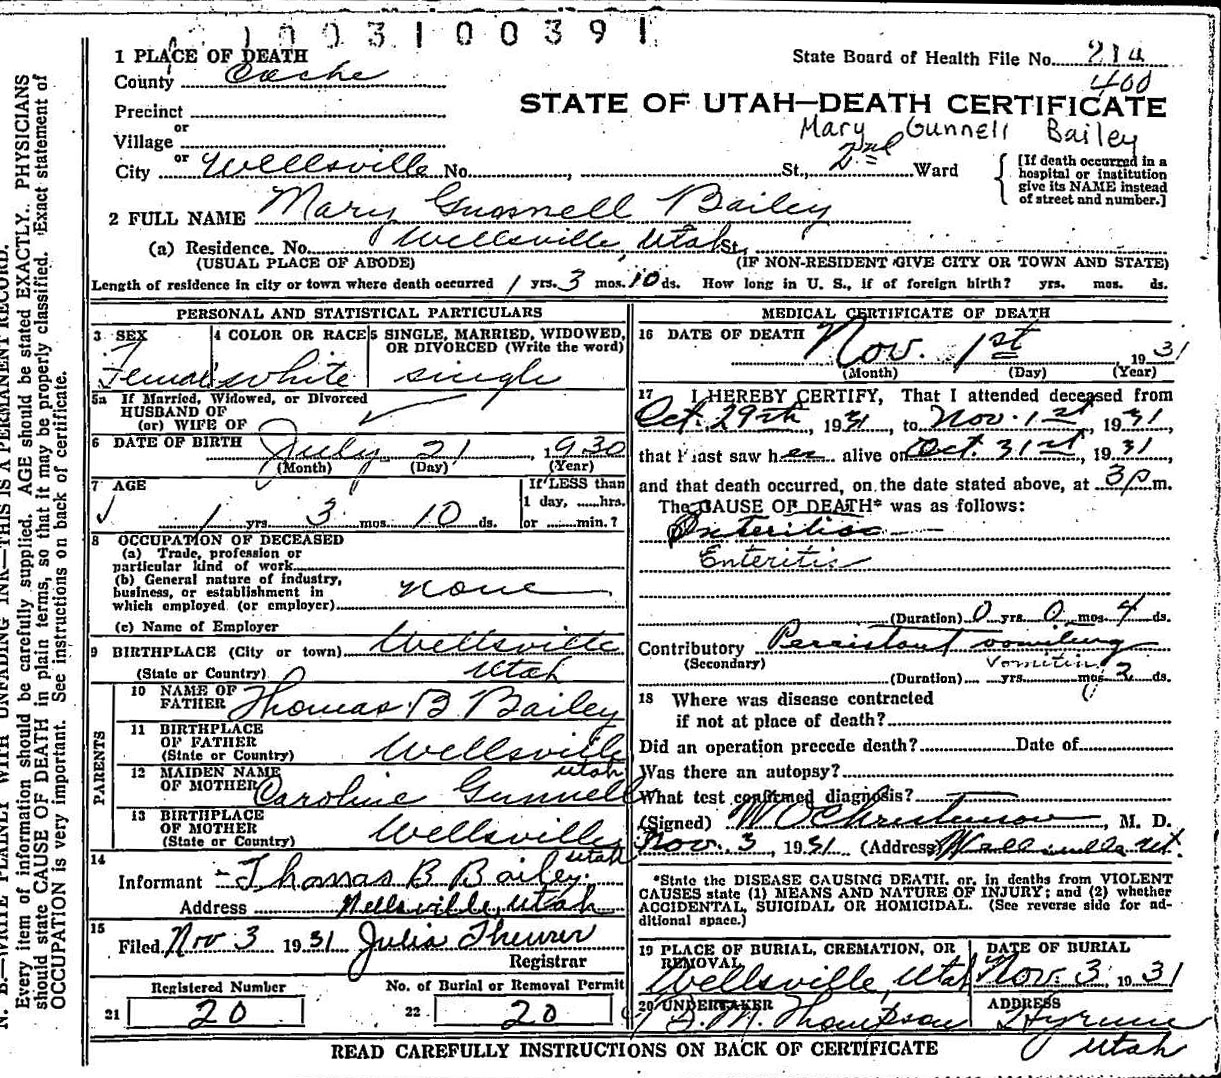 1003100391
1 PLACE OF DEATH
State Board of Health File No. 214
County Cache
400
STATE OF UTAH—DEATH CERTIFICATE
Precinct
or
Village
Mary Gunnell Bailey
or
City Wellsville No. , St., 2nd Ward
[If death occurred in a hospital or institution give its NAME instead of street and number.]
2 FULL NAME Mary Gunnell Bailey
(a) Residence. No. Wellsville, Utah St.,
(USUAL PLACE OF ABODE) (IF NON-RESIDENT GIVE CITY OR TOWN AND STATE)
Length of residence in city or town where death occurred 1 yrs. 3 mos. 10 ds. How long in U. S., if of foreign birth? yrs. mos. ds.
PERSONAL AND STATISTICAL PARTICULARS
3 SEX 4 COLOR OR RACE 5 SINGLE, MARRIED, WIDOWED,
OR DIVORCED (Write the word)
Female white single
5a If Married, Widowed, or Divorced
HUSBAND OF
(or) WIFE OF
6 DATE OF BIRTH July 21, 1930
(Month) (Day) (Year)
7 AGE If LESS than
1 day, ......hrs.
1 yrs. 3 mos. 10 ds. or ......min.?
8 OCCUPATION OF DECEASED
(a) Trade, profession or
particular kind of work
(b) General nature of industry,
business, or establishment in
which employed (or employer) none
(c) Name of Employer
9 BIRTHPLACE (City or town) Wellsville
(State or Country) Utah
PARENTS
10 NAME OF
FATHER Thomas B. Bailey
11 BIRTHPLACE
OF FATHER Wellsville
(State or Country) Utah
12 MAIDEN NAME
OF MOTHER Caroline Gunnell
13 BIRTHPLACE
OF MOTHER Wellsville
(State or Country) Utah
14
Informant Thomas B Bailey
Address Wellsville, Utah
15
Filed Nov 3 1931 Julia Theurer
Registrar
Registered Number No. of Burial or Removal Permit
21 20 22 20
MEDICAL CERTIFICATE OF DEATH
16 DATE OF DEATH Nov. 1st 1931
(Month) (Day) (Year)
17 I HEREBY CERTIFY, That I attended deceased from
Oct. 29th, 1931, to Nov. 1st, 1931
that I last saw her alive on Oct. 31st, 1931,
and that death occurred, on the date stated above, at 3 p m.
The CAUSE OF DEATH* was as follows:
Enteritis
Enteritis
(Duration) 0 yrs. 0 mos. 4 ds.
Contributory Persistant vomiting
(Secondary) Vomiting
(Duration) yrs. mos. 2 ds.
18 Where was disease contracted
if not at place of death?
Did an operation precede death? Date of
Was there an autopsy?
What test confirmed diagnosis?
(Signed) W O Christenson, M. D.
Nov. 3, 1931 (Address) Wellsville Ut.
*State the DISEASE CAUSING DEATH, or, in deaths from VIOLENT
CAUSES state (1) MEANS AND NATURE OF INJURY; and (2) whether
ACCIDENTAL, SUICIDAL OR HOMICIDAL. (See reverse side for ad-
ditional space.)
19 PLACE OF BURIAL, CREMATION, OR REMOVAL DATE OF BURIAL
Wellsville, Utah Nov. 3 1931
20 UNDERTAKER ADDRESS
M. Thompson Hyrum
Utah
READ CAREFULLY INSTRUCTIONS ON BACK OF CERTIFICATE
N. B.—WRITE PLAINLY WITH UNFADING INK—THIS IS A PERMANENT RECORD.
Every item of information should be carefully supplied. AGE should be stated EXACTLY. PHYSICIANS
should state CAUSE OF DEATH in plain terms, so that it may be properly classified. Exact statement of
OCCUPATION is very important. See instructions on back of certificate.